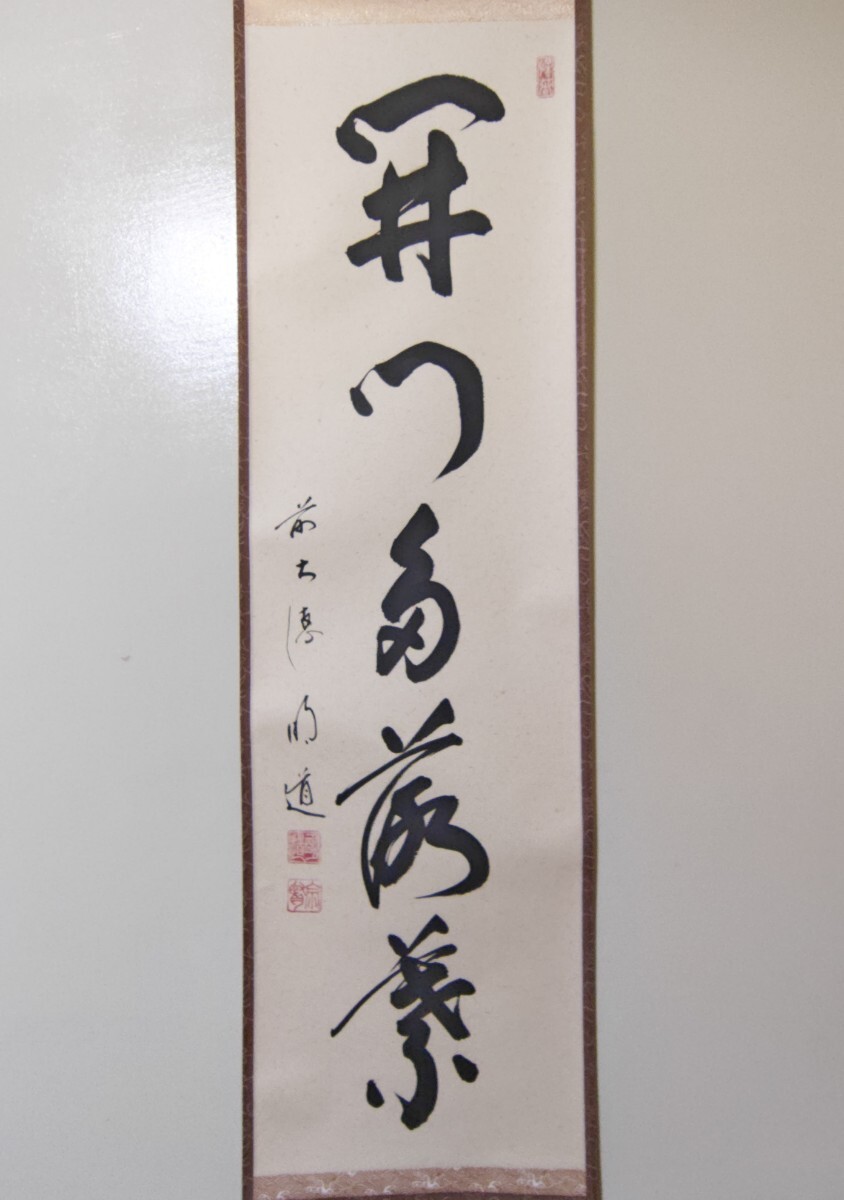 開門多落葉
前大徳 明道